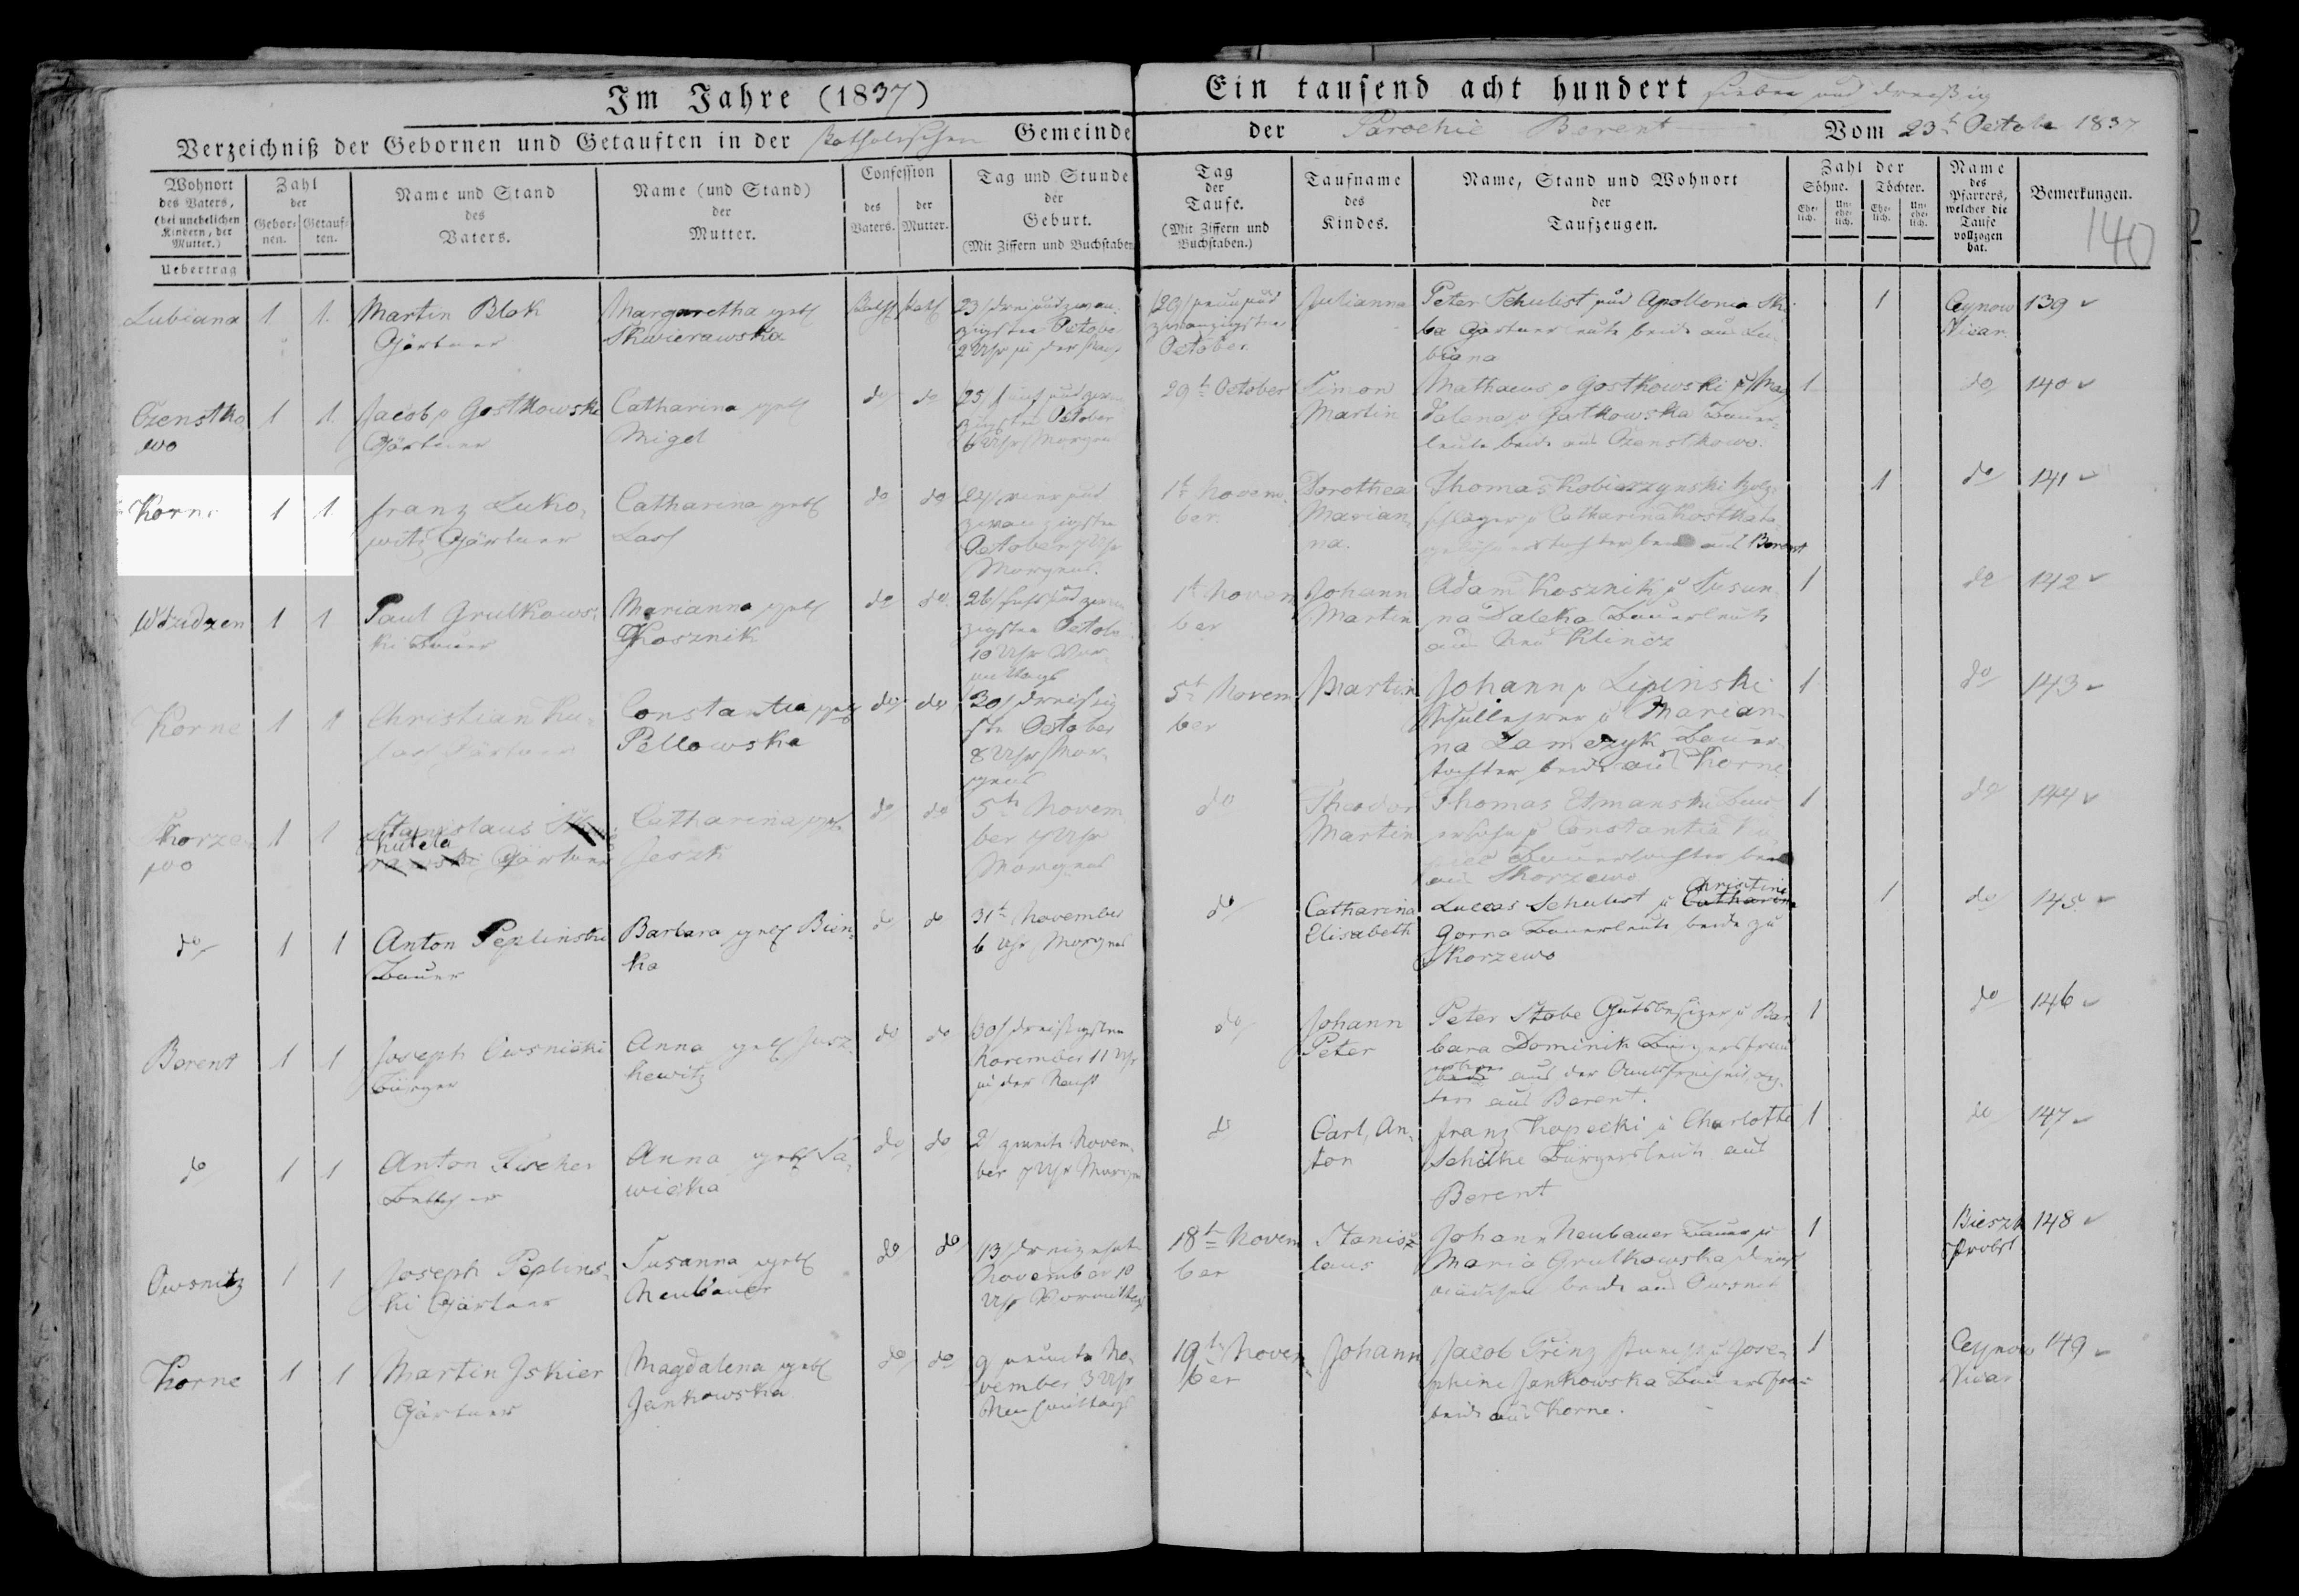 Im Jahre (1837) Ein tausend acht hundert sieben und dreißig
Verzeichniß der Gebornen und Getauften in der Katholischen Gemeinde der Parochie Berent Vom 23t October 1837
Wohnort des Vaters, (bei unehelichen Kindern, der Mutter.)
Zahl der Gebornen. Getauften.
Name und Stand des Vaters.
Name (und Stand) der Mutter.
Confession des Vaters. der Mutter.
Tag und Stunde der Geburt. (Mit Ziffern und Buchstaben
Tag der Taufe. (Mit Ziffern und Buchstaben.)
Taufname des Kindes.
Name, Stand und Wohnort der Taufzeugen.
Zahl der Söhne. Ehelich. Unehelich. Töchter. Ehelich. Unehelich.
Name des Pfarrers, welcher die Taufe vollzogen hat.
Bemerkungen.
140
Uebertrag
Lubiana 1 1. Martin Blok Margaretha geb 23/ drei und zwan- 29/ neun und Julianna Peter Schulist und Apollonia 1 139
Gärtner Skwierawska zigsten October zwanzigsten ba Gärtnerleute beide aus Lu-
2 Uhr in der Nacht October biana
Vicar
Czenstko 1 1. Jacob v Gostkowski Catharina geb do do 25 29t October Simon Mathaeus v Gostkowski u Mag 1 do 140
wo Gärtner Migel October Martin dalena v Gostkowska Bauer-
6 Uhr Morgens leute beide aus Czenstkowo.
Korne 1 1. Franz Luko- Catharina geb do do 24/ vier und 1t Novem- Dorothea Thomas Kobierzynski 1 do 141
witz Gärtner Las zwanzigsten ber. Marian- Catharina
October 7 Uhr na. beide aus Berent
Morgens.
Wdzidzen 1 1 Paul Grulkows- Marianna geb do do 26/ 1t Novem Johann Adam Kosznik u Susan- 1 do 142
ki Bauer Kosznik zigsten October ber Martin na Daleka Bauerleute
10 Uhr Vor- aus Neu Klincz
mittags
Korne 1 1 Christian Constantia geb do do 30/ dreißig 5t Novem Martin Johann v Lipinski 1 do 143
Gärtner Pellowska sten October ber Schullehrer u Marian-
8 Uhr Mor- na Bauer-
gens tochter beide aus Korne
Skorze- 1 1 Stanislaus Catharina geb do do 5t Novem do Theodor Thomas Etmanski 1 do 144
wo Kuteta Gärtner Jeszk ber 7 Uhr Martin Constantia
Morgens Bauertochter beide
aus Skorzewo
do 1 1 Anton Peplinski Barbara geb Bien- do do 31t November do Catharina Lucas Schulist u Christine 1 do 145
Bauer ka 6 Uhr Morgens Elisabeth Gorna Bauerleute beide zu
Skorzewo
Berent 1 1 Joseph Owsnicki Anna geb Jusz- do do 30/ dreißigsten do Johann Peter Stobe Gutsbesitzer u Bar- 1 do 146
Bürger kewitz November 11 Uhr Peter bara Dominik Bürgersfrau
in der Nacht aus der Amtsfreiheit
aus Berent.
do 1 1 Anton Fischer Anna geb Sa- do do 2/ zweite Novem- do Carl, An- Franz Kopecki u Charlotte 1 do 147
wicka ber 7 Uhr Morgens ton Schilke Bürgersleute aus
Berent
Owsnitz 1 1 Joseph Peplins- Susanna geb do do 13/ dreizehnte 18t Novem Stanis- Johann Neubauer Bauer u 1 Bieszk 148
ki Gärtner Neubauer November 10 ber laus Maria Grulkowska Dienst-
Uhr Vormittags mädchen beide aus Owsnitz
Probst
Korne 1 1 Martin Iskier Magdalena geb do do 9 neunte No- 19t Novem Johann Jacob Prinz u Jose- 1 149
Gärtner Jankowska vember 3 Uhr ber phine Jankowska Bauersfrau
Nachmittags beide aus Korne.
Vicar